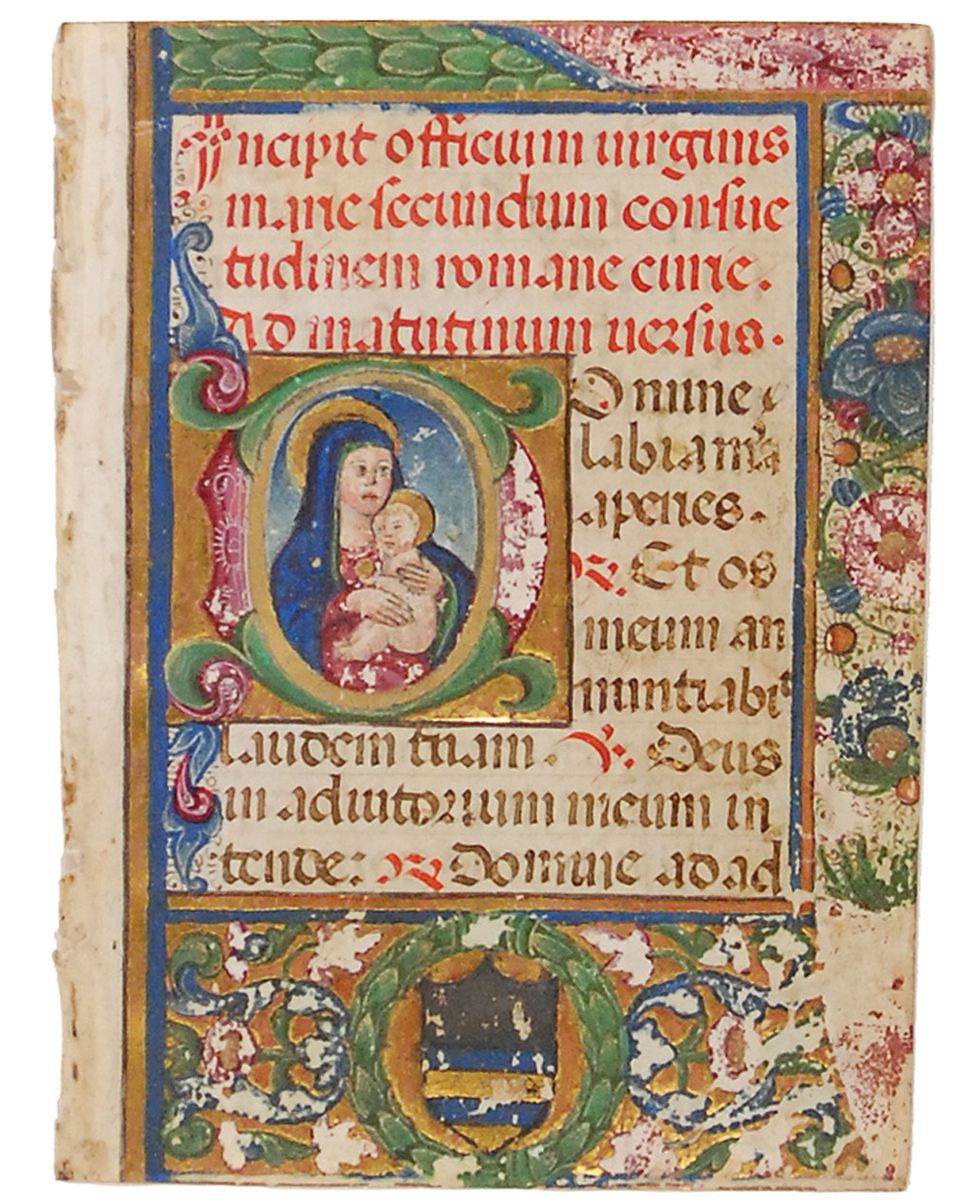 Incipit officium uirginis
marie secundum consue
tudinem romane curie.
Ad matutinum uersus.
Domine
labia m̃a
aperies.
R. Et os
meum an
nuntiabit
laudem tuam. V. Deus
in adiutorium meum in
tende: R Domine ad ad